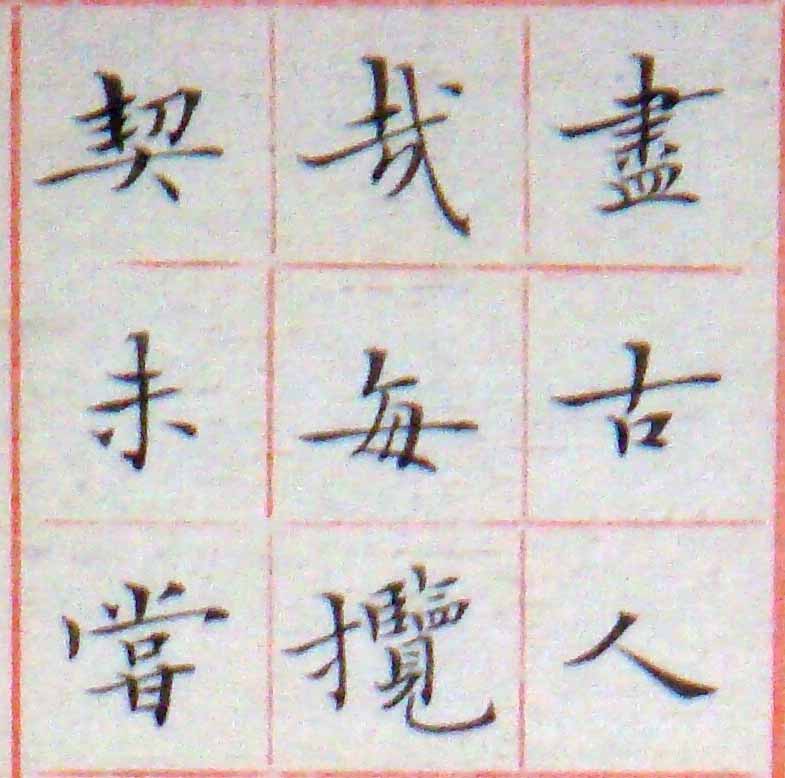 盡古人
哉每攬
契未嘗